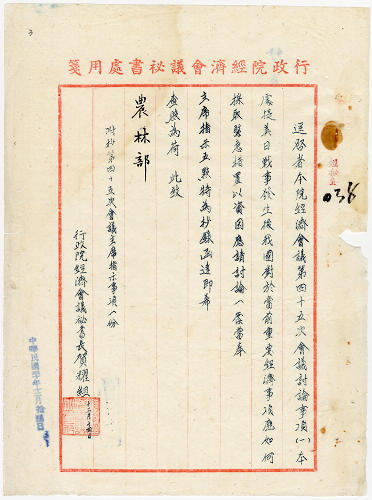 行政院經濟會議祕書處用箋
逕啓者本院經濟會議第四十五次會議討論事項(一)本
處提美日戰事發生後我國對於當前重要經濟事項應如何
採取緊急措置以資因應請討論一案當奉
主席指示五點特為抄錄函達即希
查照為荷 此致
農林部
附抄第四十五次會議主席指示事項一份
行政院經濟會議祕書長賀耀組
中華民國卅年十二月拾